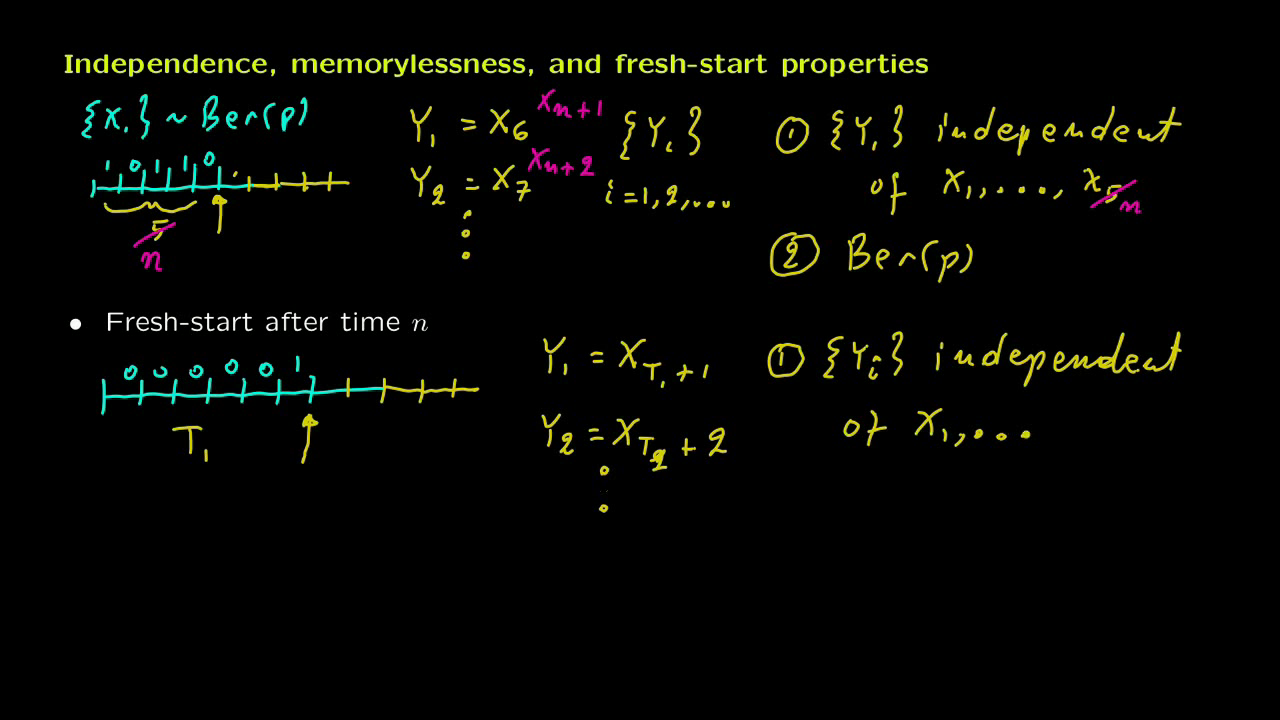 Independence, memorylessness, and fresh-start properties
{X_i} ~ Ber(p)
1 0 1 1 0
5 n
Y_1 = X_6 X_{n+1}
Y_2 = X_7 X_{n+2}
{Y_i}
i = 1, 2, ...
① {Y_i} independent
of X_1, ..., X_5 n
② Ber(p)
• Fresh-start after time n
0 0 0 0 0 1
T_1
Y_1 = X_{T_1 + 1}
Y_2 = X_{T_2 + 2}
① {Y_i} independent
of X_1, ...